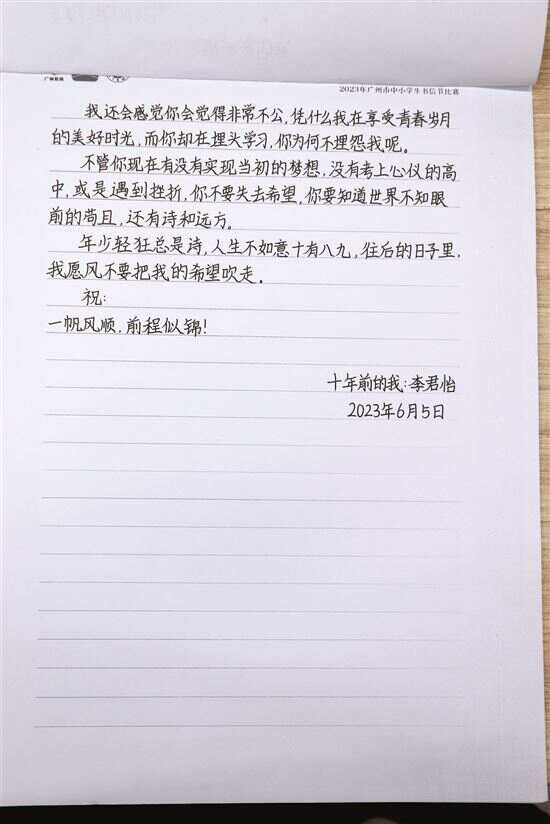 2023年广州市中小学生书信节比赛
我还会感觉你会觉得非常不公,凭什么我在享受青春岁月
的美好时光,而你却在埋头学习,你为何不埋怨我呢。
不管你现在有没有实现当初的梦想,没有考上心仪的高
中,或是遇到挫折,你不要失去希望,你要知道世界不知眼
前的苟且,还有诗和远方。
年少轻狂总是诗,人生不如意十有八九,往后的日子里,
我愿风不要把我的希望吹走。
祝:
一帆风顺,前程似锦!
十年前的我:李君怡
2023年6月5日